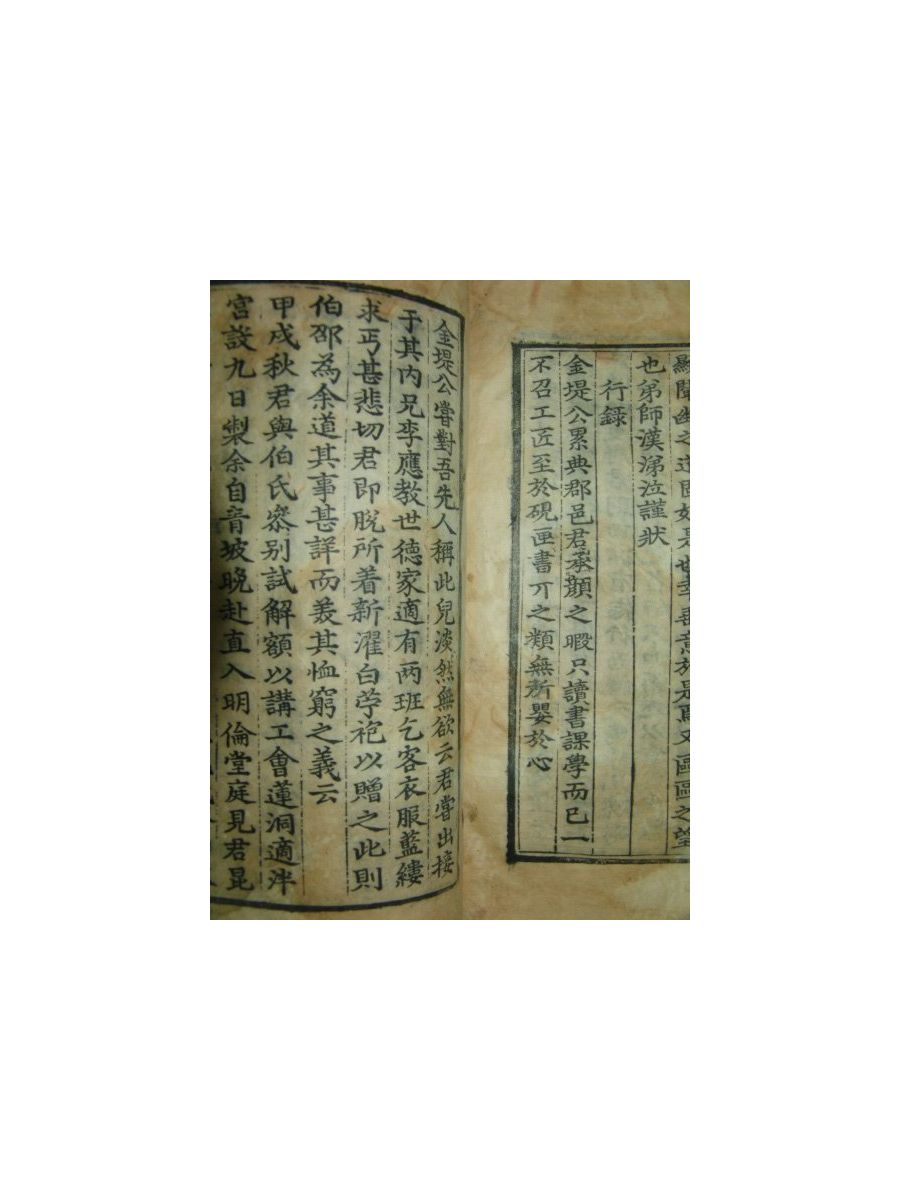 顯闡幽之道固如是也幸垂意於是焉又區區之望
也弟師漢涕泣謹狀
行録
金堤公累典郡邑君承顔之暇只讀書課學而已一
不召工匠至於硯匣書丌之類無所嬰於心
金堤公嘗對吾先人稱此兒淡然無欲云君嘗出接
于其内兄李應教世德家適有両班乞客衣服藍縷
求丐甚悲切君即脫所着新濯白苧袍以贈之此則
伯邵為余道其事甚詳而羡其恤窮之義云
甲戌秋君與伯氏叅别試解額以講工會蓮洞適泮
宮設九日製余自音坡晚赴直入明倫堂庭見君昆